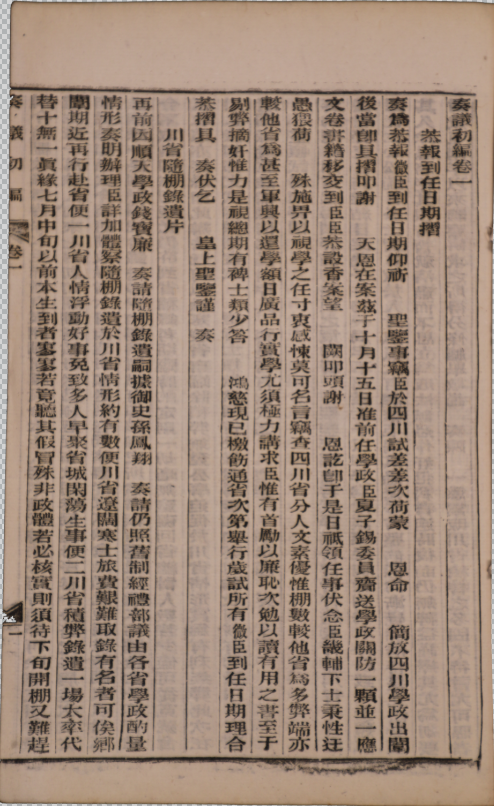 奏議初編卷一
恭報到任日期摺
奏爲恭報微臣到任日期仰祈 聖鑒事竊臣於四川試差差次荷蒙 恩命 簡放四川學政出闈
後當卽具摺叩謝 天恩在案茲于十月十五日准前任學政臣夏子鍚委員齎送學政關防一顆並一應
文卷書籍移交到臣臣恭設香案望 闕叩頭謝 恩訖卽于是日祇領任事伏念臣畿輔下士秉性迂
愚猥荷 殊施畀以視學之任寸衷感悚莫可名言竊查四川省分人文素優惟棚數較他省爲多弊端亦
較他省爲甚至軍興以還學額日廣品行實學尤須極力講求臣惟有首勵以廉恥次勉以讀有用之書至于
剔弊摘奸惟力是視總期有裨士類少答 鴻慈現已檄飭通省次第舉行歲試所有微臣到任日期理合
恭摺具 奏伏乞 皇上聖鑒謹 奏
川省隨棚錄遺片
再前因順天學政錢寶廉 奏請隨棚錄遺嗣據御史孫鳳翔 奏請仍照舊制經禮部議由各省學政酌量
情形奏明辦理臣詳加體察隨棚錄遺於川省情形約有數便川省遼闊寒士旅費艱難取錄有名者可俟鄉
闈期近再行赴省便一川省人情浮動好事免致多人早聚省城閑蕩生事便二川省積弊錄遺一場大率代
替十無一眞緣七月中旬以前本生到者寥寥若竟聽其假冒殊非政體若必核實則須待下旬開棚又難趕
奏議初編 卷一 一